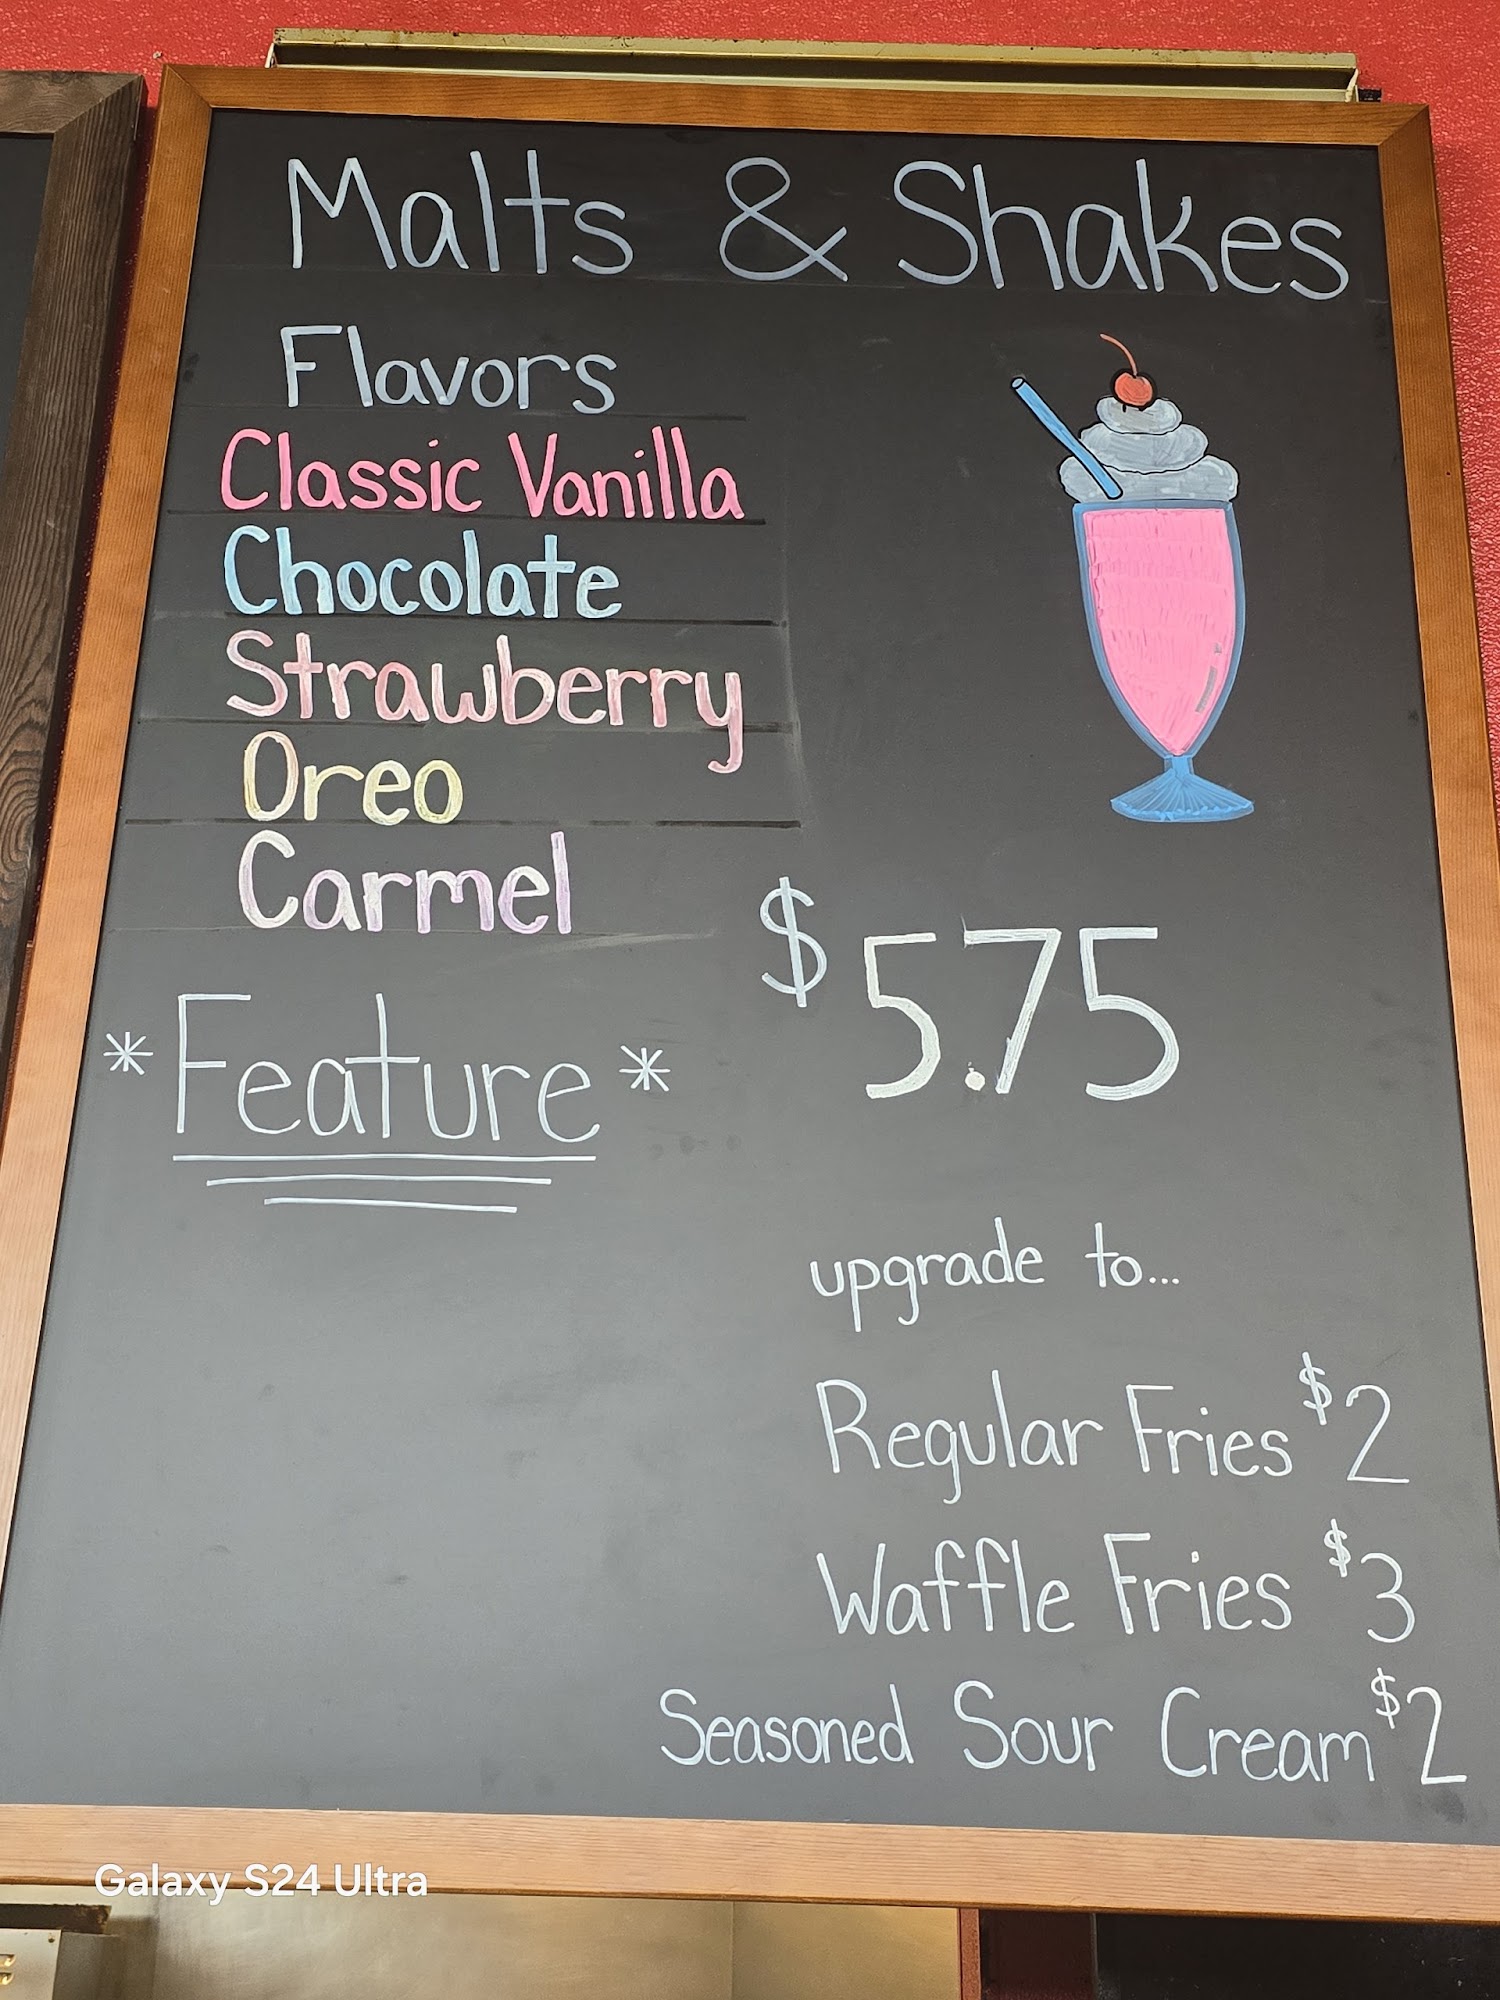 Malts & Shakes
Flavors
Classic Vanilla
Chocolate
Strawberry
Oreo
Carmel
$5.75
*Feature*
upgrade to...
Regular Fries $2
Waffle Fries $3
Seasoned Sour Cream $2
Galaxy S24 Ultra